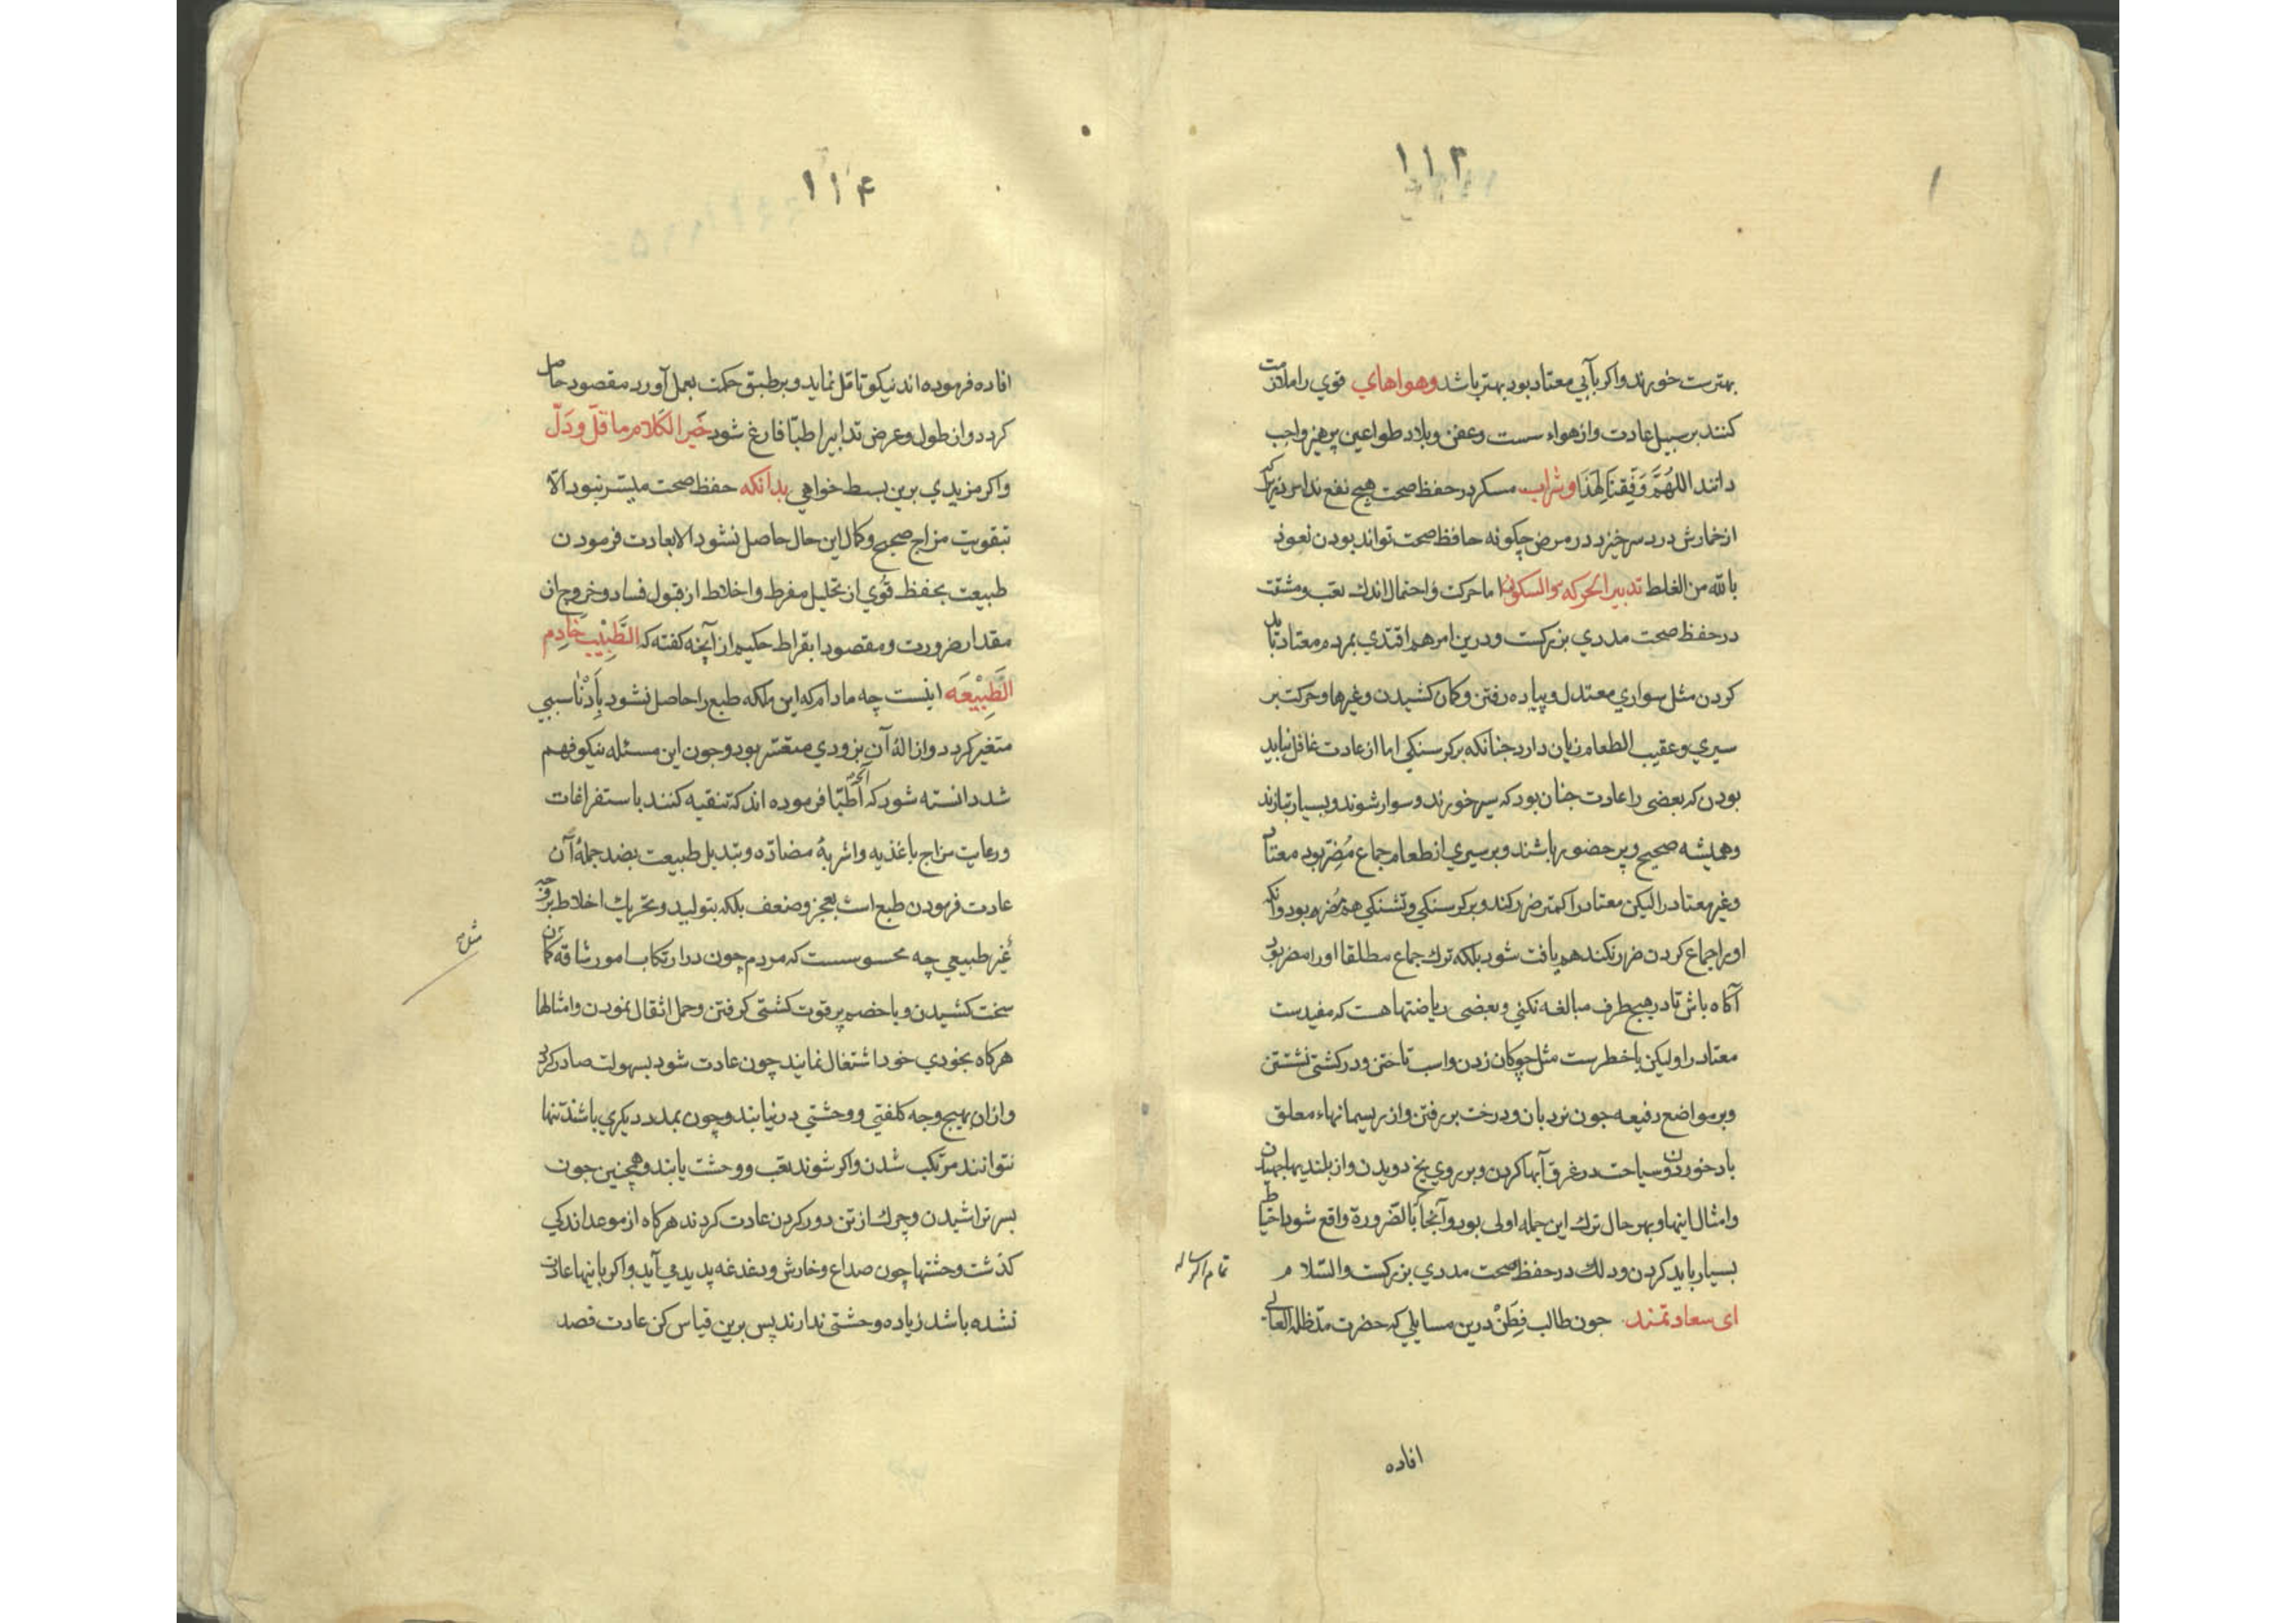 ۱۱۳
بهترست خورند واکر بآبی معتاد بود بهتر باشد وهواهای قوی را ملازمت
کنند بر سبیل عادت واز هواء سست وعفن وبلاد طواعین پرهیز واجب
دانند اللهُمَّ وَفِّقنَا لِهَذَا وشراب مسکر در حفظ صحت هیچ نفع ندارد زیراکه
از خمارش درد سر خیزد در مرض چکونه حافظ صحت تواند بودن نعوذ
بالله من الغلط تدبیر الحرکه والسکون اما حرکت واحتمال اندك تعب ومشقت
در حفظ صحت مددی بزرکست ودرین امر هم اقتدی بمردم معتاد باید
کردن مثل سواری معتدل وپیاده رفتن وکمان کشیدن وغیرها وحرکت بر
سیری وعقیب الطعام زیان دارد جنانکه بر کرسنکی اما از عادت غافل نباید
بودن که بعضی را عادت جنان بود که سیر خورند وسوار شوند وبسیار بتازند
وهمیشه صحیح وپر حضور باشند وبر سیری از طعام جماع مُضِرّ بود معتاد
وغیر معتاد را لیکن معتاد را کمتر ضرر کند وبر کرسنکی وتشنکی هم مُضر بود وآنکه
اورا جماع کردن ضرر نکند هم یافت شود بلکه ترك جماع مطلقا اورا مضر بود
آکاه باش تا در هیچ طرف مبالغه نکنی وبعضی ریاضتها هست که مفیدست
معتاد را ولیکن با خطرست مثل چوکان زدن واسب تاختن ودر کشتی نشستن
وبر مواضع رفیعه جون نردبان ودرخت بر رفتن واز ریسمانهاء معلق
باد خوردن وسیاحت در غرق آبها کردن وبر روی یخ دویدن واز بلندیها جهیدن
وامثال اینها وبهر حال ترك این جمله اولی بود وآنجا که بالضرورة واقع شود احتیاط
بسیار باید کردن ودلك در حفظ صحت مددی بزرکست والسّلام
تمام الرساله
ای سعادتمند جون طالب فِطَن درین مسایلی که حضرت مدّ ظله العالی
افاده
۱۱۴
افاده فرموده اند نیکو تامّل نماید وبر طبق حکمت بعمل آورد مقصود حاصل
کردد واز طول وعرض تدابیر اطبّا فارغ شود خَیر الکَلام ما قَلّ ودَلّ
واکر مزیدی برین بسط خواهی بدانکه حفظ صحت میسّر نبود الّا
بتقویت مزاج صحیح وکمال این حال حاصل نشود الا بعادت فرمودن
طبیعت بحفظ قُوی از تحلیل مفرط واخلاط از قبول فساد وخروج از
مقدار ضرورت ومقصود ابقراط حکیم از آنچه کفته که الطَّبِیْب خَادِم
الطَّبِیْعَه اینست چه مادام که این ملکه طبع را حاصل نشود بِاَدْنٰا سببی
متغیر کردد وازالهٔ آن بزودی متعسّر بود وجون این مسئله نیکو فهم
شد دانسته شود که آنچه اَطِبّا فرموده اند که تنقیه کنند باستفراغات
ورعایت مزاج باغذیه واشربهٔ مضادّه وتبدیل طبیعت بضد جملهٔ آن
عادت فرمودن طبع است بعجز وضعف بلکه بتولید وتحریك اخلاط بر وجه
غیر طبیعی چه محسوسست که مردم چون در ارتکاب امور شاقه مثل کمان
مثل
سخت کشیدن وبا خصم پر قوت کشتی کرفتن وحمل اثقال نمودن وامثالها
هرکاه بخودی خود اشتغال نمایند چون عادت شود بسهولت صادر کردد
وازان بهیچ وجه کلفتی ووحشتی در نیابند وچون بمدد دیکری باشند تنها
نتوانند مرتکب شدن واکر شوند تعب ووحشت یابند وهمچنین جون
بسر تراشیدن وچرك از تن دور کردن عادت کردند هرکاه از موعد اندکی
کذشت وحشتها چون صداع وخارش ودغدغه پدید می آید واکر باینها عادت
نشده باشد زیاده وحشتی ندارند پس برین قیاس کن عادت فصد